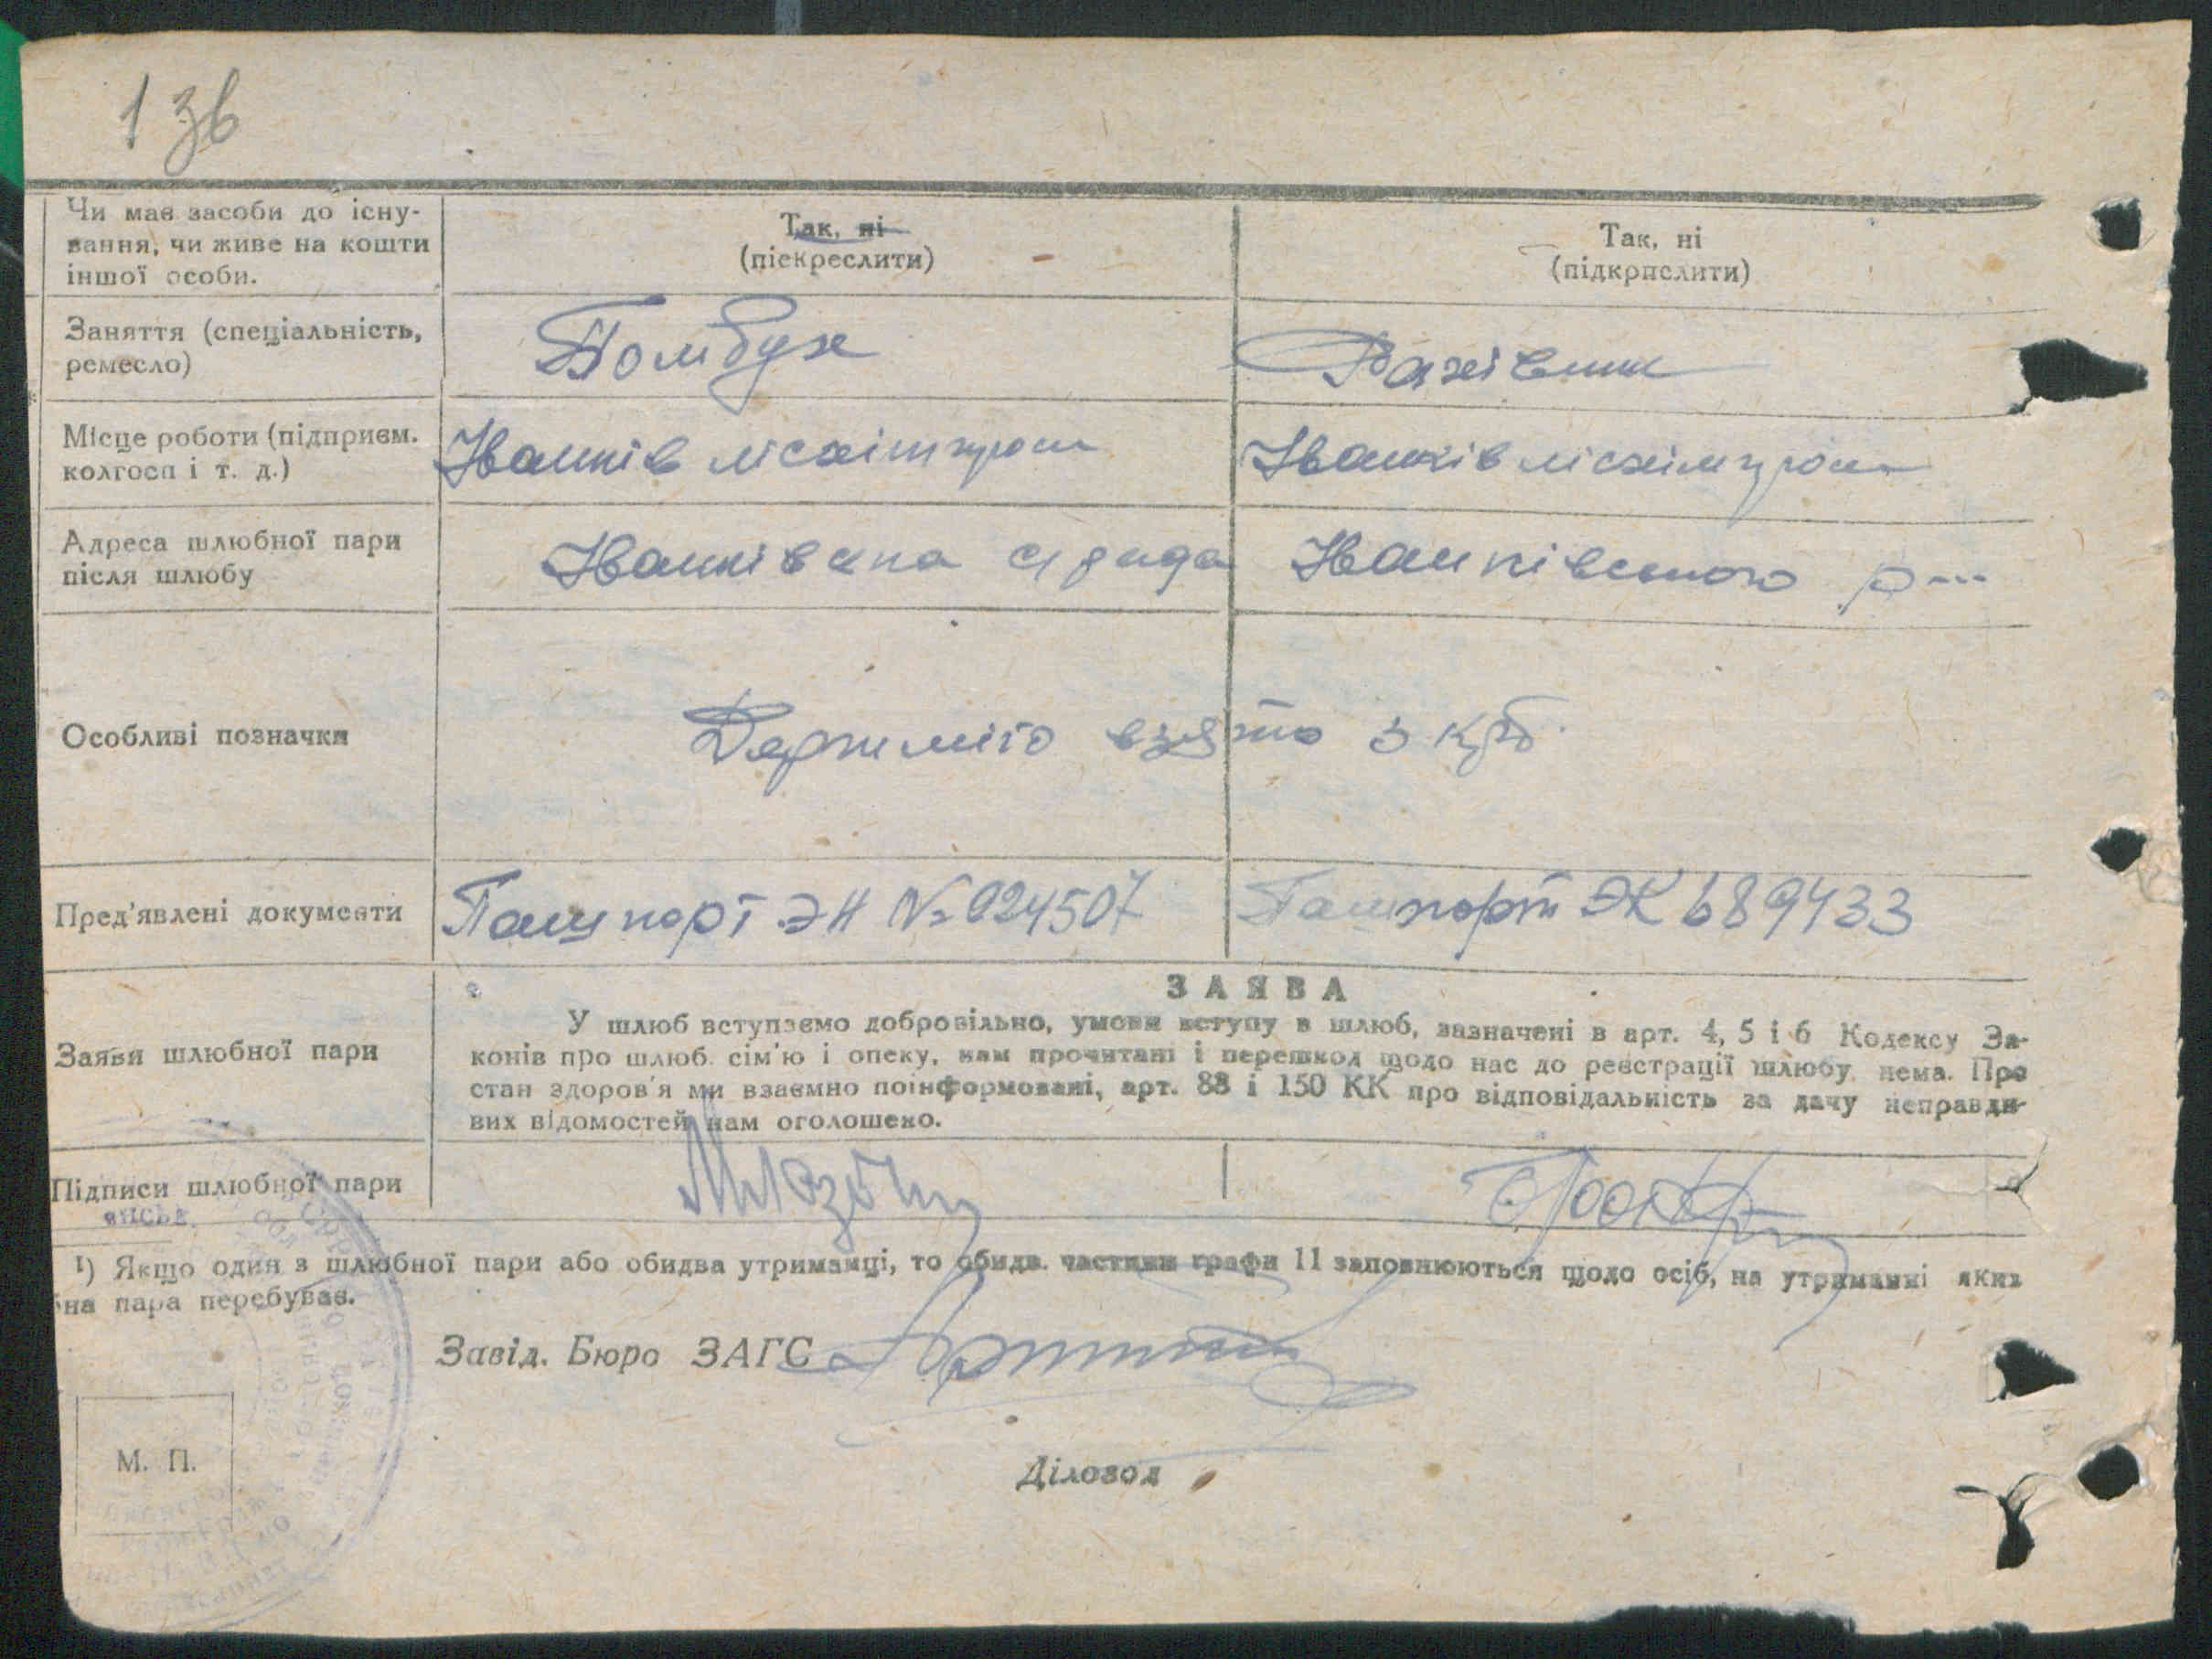 1 зв
Чи має засоби до існу-
вання, чи живе на кошти
іншої особи.
Так, ні
(піекреслити)
Так, ні
(підкрислити)
Заняття (спеціальність,
ремесло)
Помбух
Рахівник
Місце роботи (підприєм.
колгосп і т. д.)
Іванків лісхімпром
Іванків лісхімпром
Адреса шлюбної пари
після шлюбу
Іванківска с/рада Іванківського р---
Особливі позначки
Держмито взято 3 крб.
Пред'явлені документи
Пашпорт ЭН № 024507
Пашпорт ЭК 689433
ЗАЯВА
Заяви шлюбної пари
У шлюб вступаємо добровільно, умови вступу в шлюб, зазначені в арт. 4, 5 і 6 Кодексу За-
конів про шлюб. сім'ю і опеку, нам прочитані і перешкод щодо нас до реєстрації шлюбу нема. Про
стан здоров'я ми взаємно поінформовані, арт. 88 і 150 КК про відповідальність за дачу неправди-
вих відомостей нам оголошено.
Підписи шлюбної пари
¹) Якщо один з шлюбної пари або обидва утриманці, то обидв. частини графи 11 заповнюються щодо осіб, на утриманні яких
на пара перебуває.
Завід. Бюро ЗАГС
М. П.
Діловод